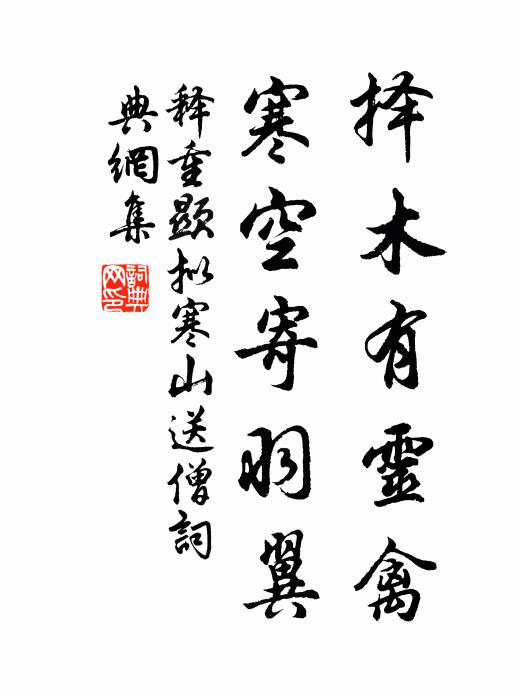 择木有靈禽
寒空寄羽翼
释重顯拟寒山送僧詞
典網集
詞典
网印